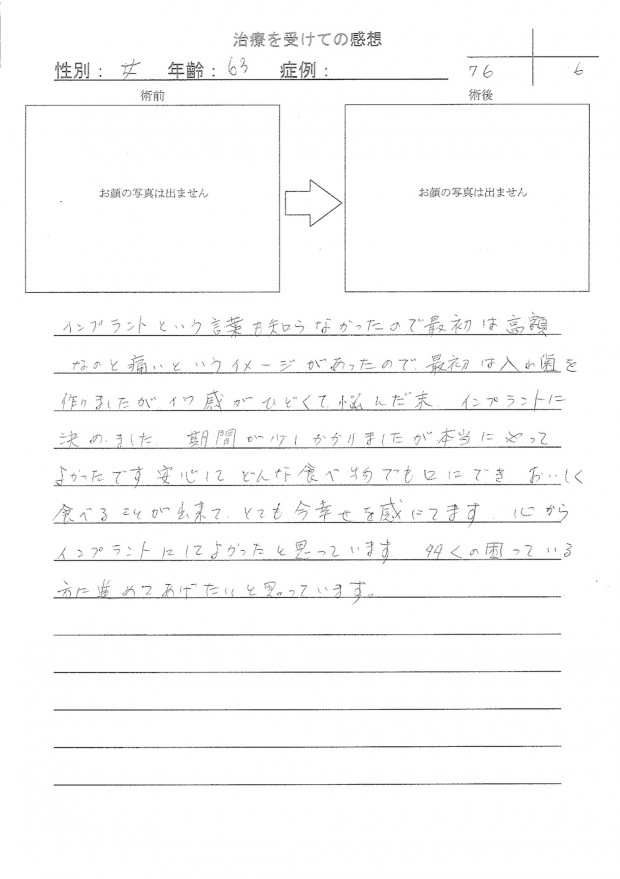 治療を受けての感想
性別： 女 年齢： 63 症例：
76 6
術前 術後
お顔の写真は出ません お顔の写真は出ません
インプラントという言葉も知らなかったので最初は高額
なのと痛いというイメージがあったので、最初は入れ歯を
作りましたがイワ感がひどくて、悩んだ末、インプラントに
決めました。 期間が少しかかりましたが本当にやって
よかったです。安心して どんな食べ物でも口にでき おいしく
食べることが出来て、とても今幸せを感じてます。心から
インプラントにしてよかったと思っています。 多くの困っている
方に進めてあげたいと思っています。